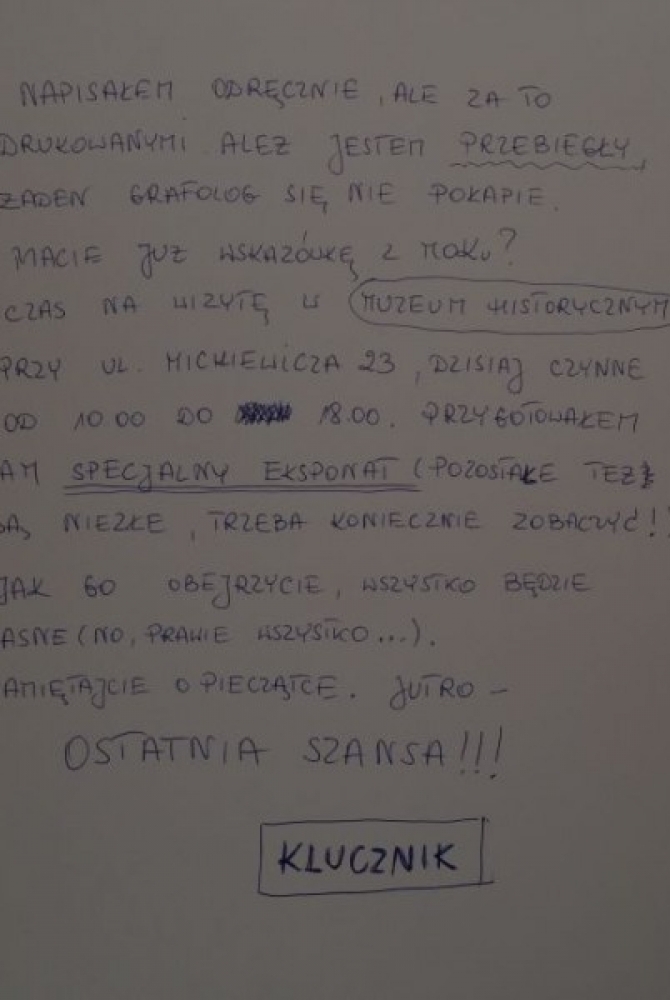 NAPISAŁEM ODRĘCZNIE, ALE ZA TO
DRUKOWANYMI. ALEZ JESTEM PRZEBIEGŁY,
ZADEN GRAFOLOG SIĘ NIE POKAPIE.
MACIE JUZ WSKAZÓWKĘ Z ROKU?
CZAS NA WIZYTĘ W MUZEUM HISTORYCZNYM
PRZY UL. MICKIEWICZA 23, DZISIAJ CZYNNE
OD 10.00 DO 18.00. PRZYGOTOWAŁEM
AM SPECJALNY EKSPONAT (POZOSTAŁE TEZ
SĄ NIEZŁE, TRZEBA KONIECZNIE ZOBACZYĆ!!
JAK GO OBEJRZYCIE, WSZYSTKO BĘDZIE
ASNE (NO, PRAWIE WSZYSTKO...).
AMIĘTAJCIE O PIECZĄTCE. JUTRO -
OSTATNIA SZANSA!!!
KLUCZNIK